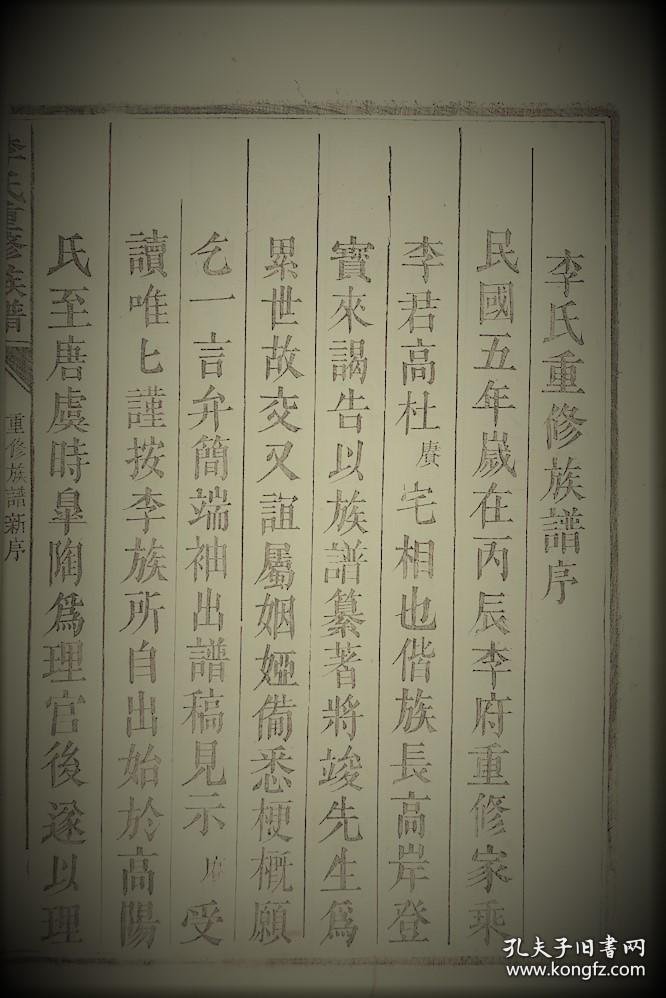 李氏重修族譜序
民國五年歲在丙辰李府重修家乘
李君高杜賡宅相也偕族長高岸登
寶來謁告以族譜纂著將竣先生爲
累世故交又誼屬姻婭備悉梗概願
乞一言弁簡端袖出譜稿見示賡受
讀唯匕謹按李族所自出始於高陽
氏至唐虞時臯陶爲理官後遂以理
李氏重修族譜
重修族譜新序
孔夫子旧书网
www.kongfz.com